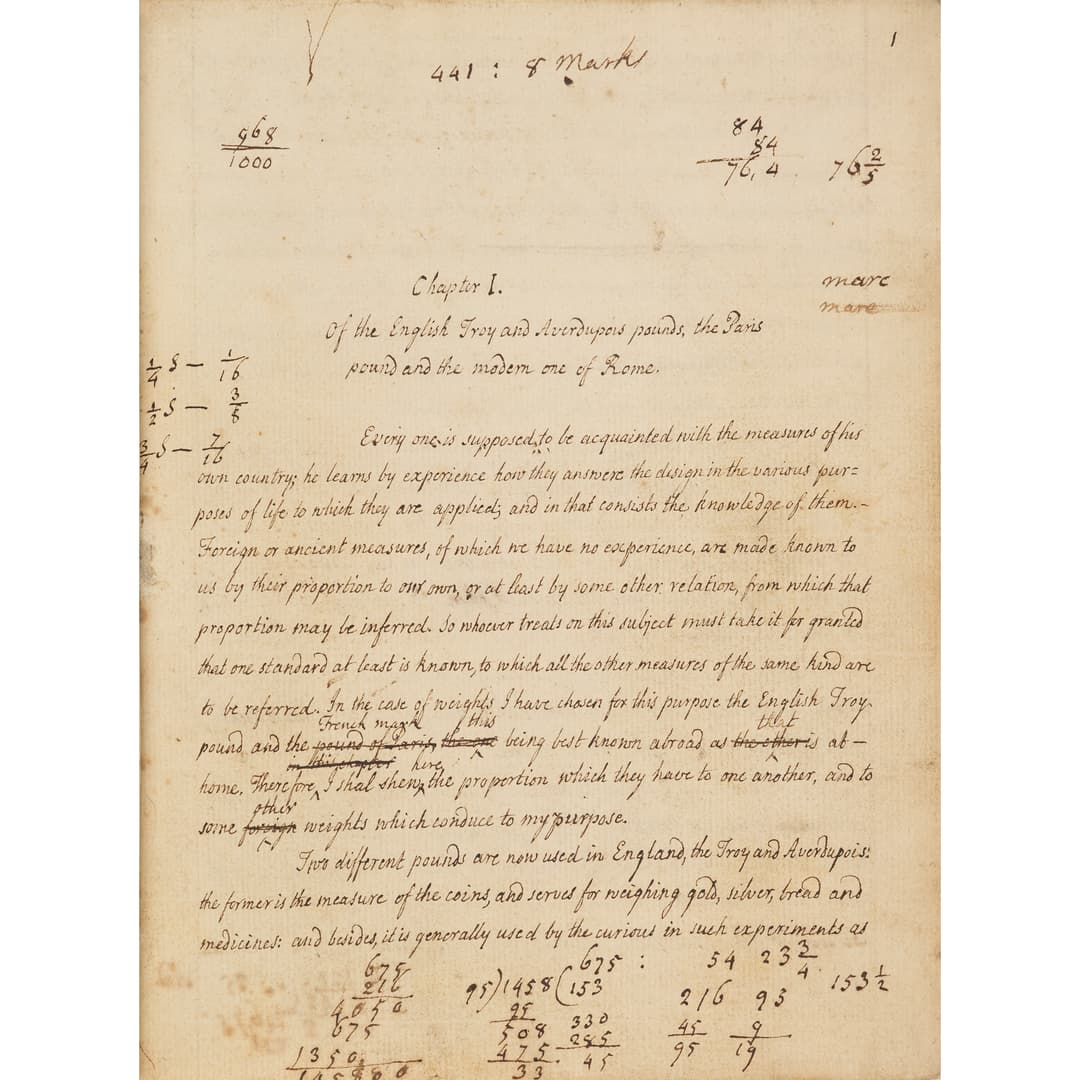 1
441 : 8 Marks
968
1000
84
84
76,4
76 2/5
Chapter I.
marc
marc
Of the English Troy and Averdupois pounds, the Paris
pound and the modern one of Rome.
1/4 S — 1/16
1/2 S — 3/8
3/4 S — 7/16
Every one is supposed to be acquainted with the measures of his
own country; he learns by experience how they answere the design in the various pur=
poses of life to which they are applied; and in that consists the knowledge of them.-
Foreign or ancient measures, of which we have no experience, are made known to
us by their proportion to our own, or at least by some other relation, from which that
proportion may be inferred. So whoever treats on this subject must take it for granted
that one standard at least is known, to which all the other measures of the same kind are
to be referred. In the case of weights I have chosen for this purpose the English Troy
French mark this that
pound and the pound of Paris, the one being best known abroad as the other is at —
in this chapter here
home. Therefore I shal shew the proportion which they have to one another, and to
other
some foreign weights which conduce to my purpose.
Two different pounds are now used in England, the Troy and Averdupois:
the former is the measure of the coins, and serves for weighing gold, silver, bread and
medicines: and besides, it is generally used by the curious in such experiments as
675
216
4050
675
1350
95)1458(153
95
508
475
33
330
285
45
675 : 54 23 3/4
216 95
153 1/2
45/95 9/19